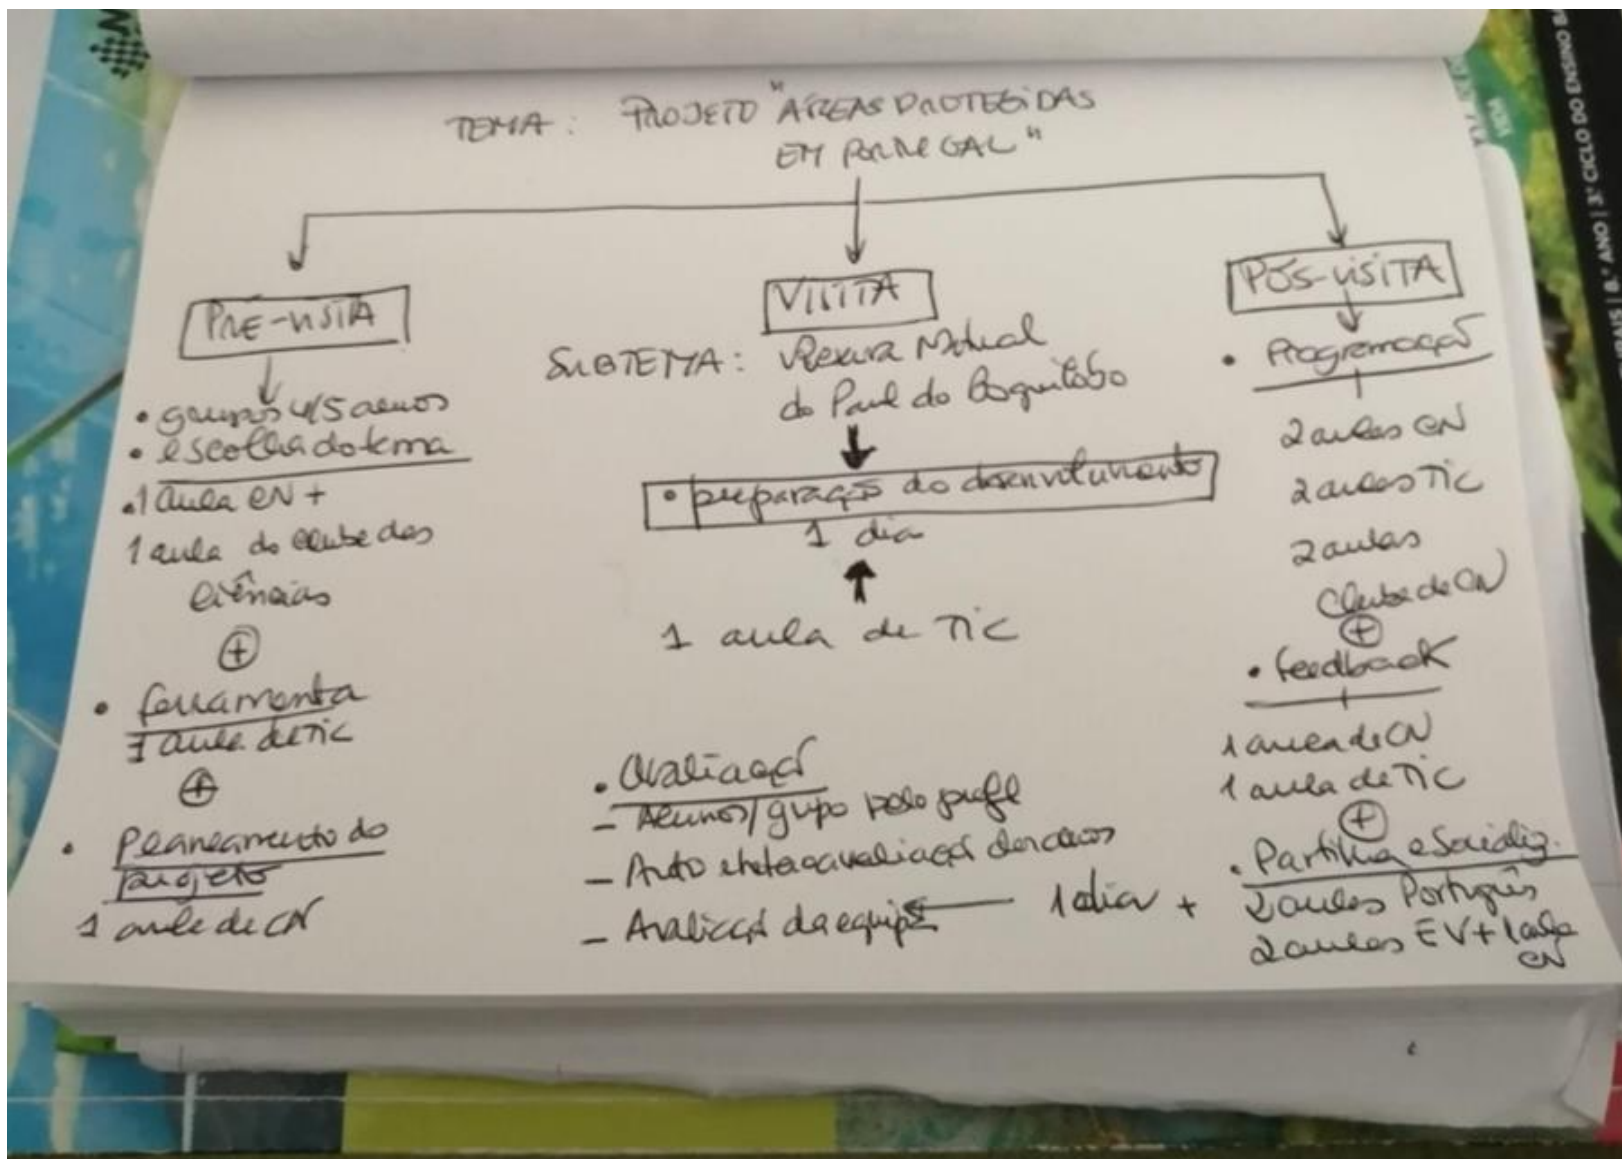 TEMA: PROJETO "ÁREAS PROTEGIDAS
EM PORTUGAL"
PRÉ-VISITA
• grupos 4/5 alunos
• escolha do tema
• 1 aula CN +
1 aula do clube das
Ciências
+
• ferramenta
1 aula de TIC
+
• Planeamento do
projeto
1 aula de CN
VISITA
SUBTEMA: Reserva Natural
do Paul do Boquilobo
• preparação do desenvolvimento
1 dia
1 aula de TIC
• Avaliação
- Alunos/grupo pelo prof
- Auto e heteroavaliação dos alunos
- Avaliação da equipa
1 dia +
PÓS-VISITA
• Programação
2 aulas CN
2 aulas TIC
2 aulas
Clube de CN
+
• feedback
1 aula de CN
1 aula de TIC
+
• Partilha e Socializ.
2 aulas Português
2 aulas EV + 1 aula
CN
8.º ANO | 3.º CICLO DO ENSINO